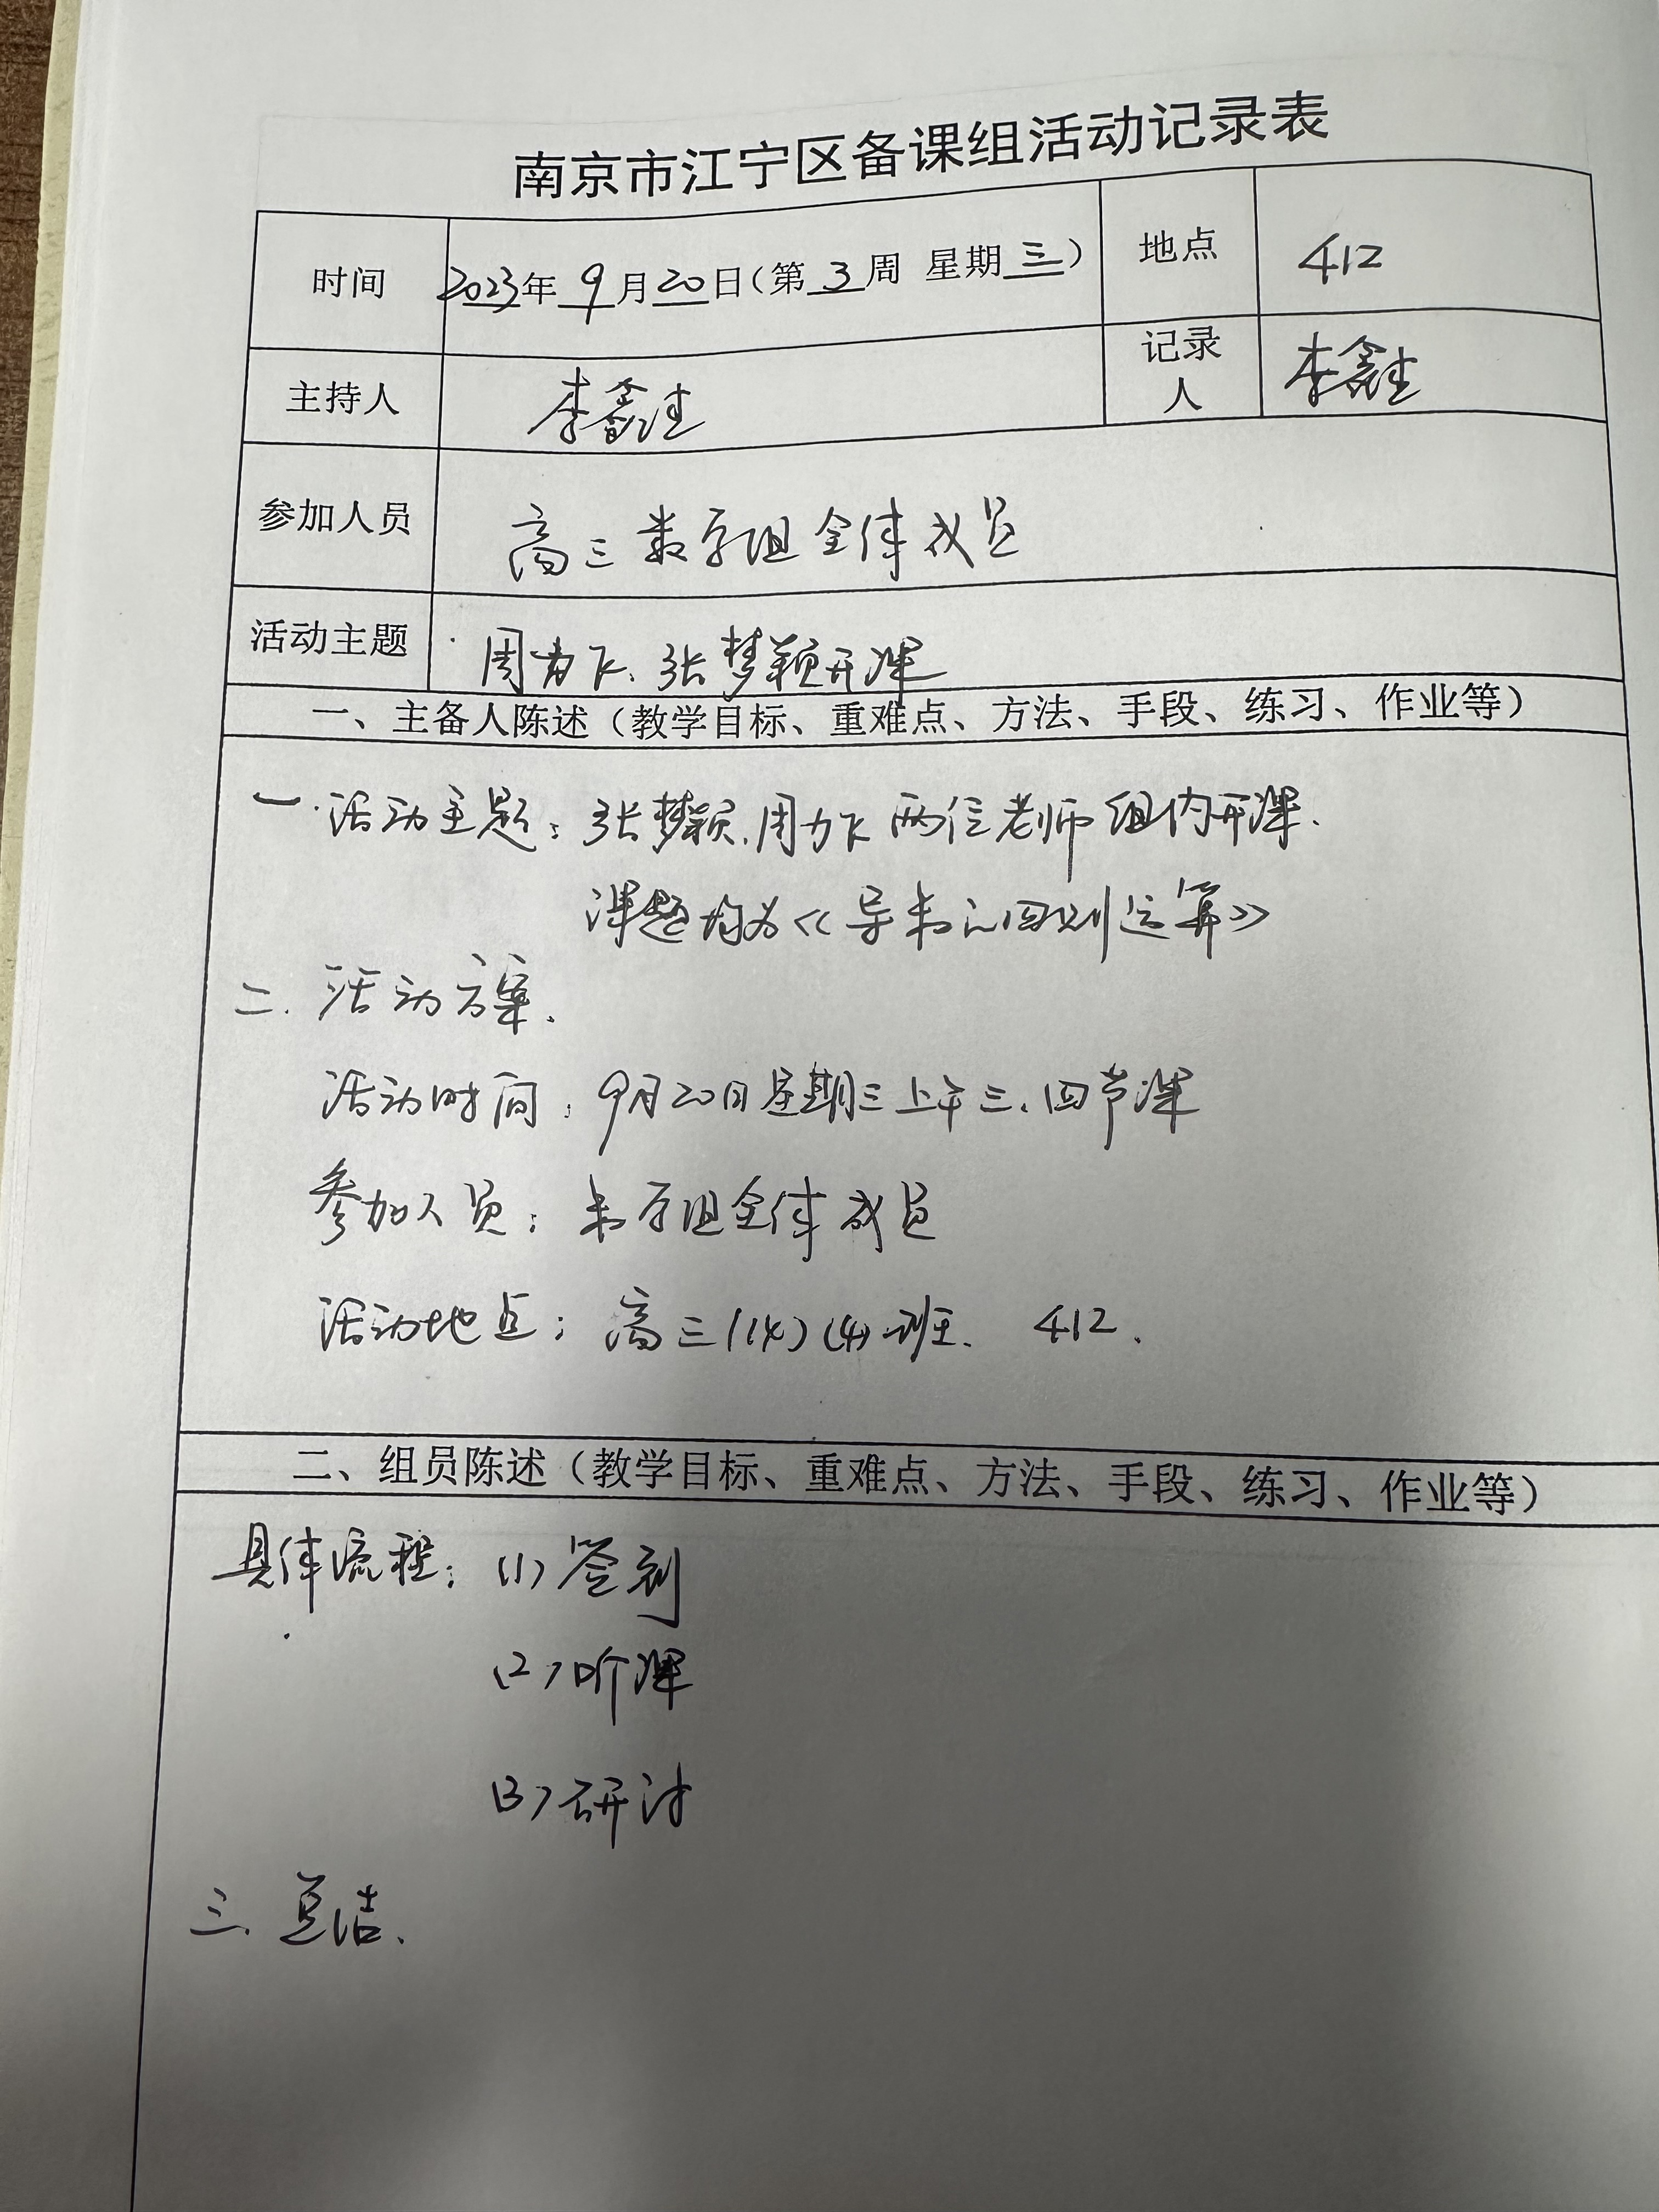 南京市江宁区备课组活动记录表
时间 2023年 9 月 20 日（第 3 周 星期 三） 地点 412
主持人 李鑫 记录人 李鑫
参加人员 高三数学组全体成员
活动主题 周 飞、张梦颖开课
一、主备人陈述（教学目标、重难点、方法、手段、练习、作业等）
一.活动主题：张梦颖.周 飞两位老师组内开课.
课题均为《导数的四则运算》
二.活动方案.
活动时间：9月20日星期三上午三.四节课
参加人员：数学组全体成员
活动地点：高三(14)(4)班. 412.
二、组员陈述（教学目标、重难点、方法、手段、练习、作业等）
具体流程：(1)签到
(2)听课
(3)研讨
三.总结.